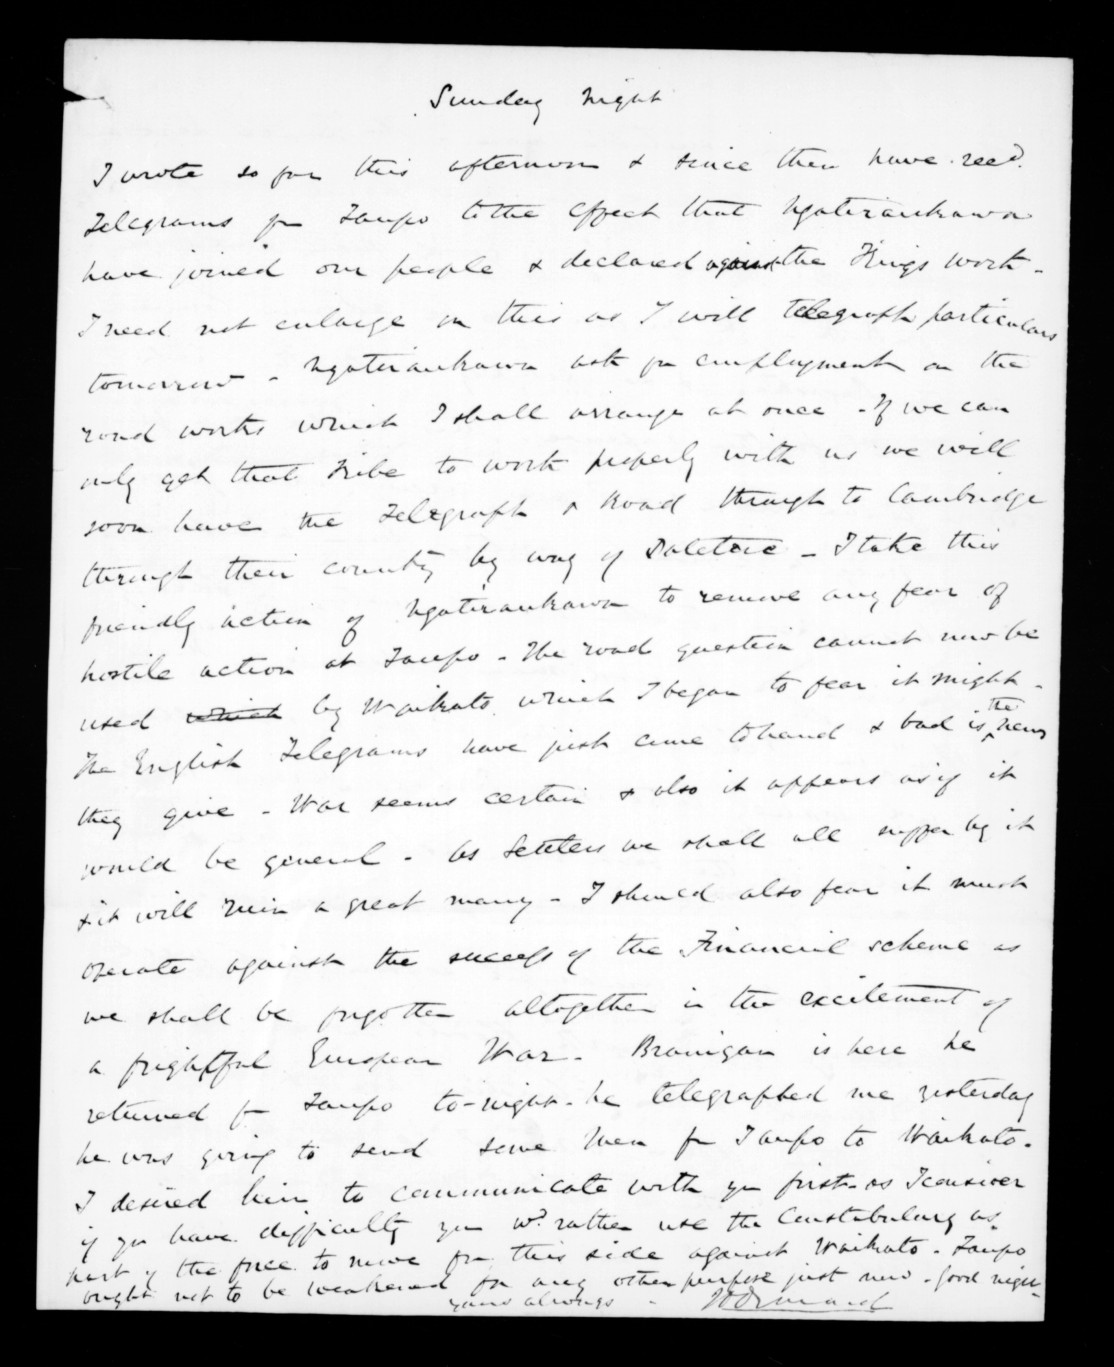 Sunday Night
I wrote so far this afternoon & since then have recd.
Telegrams fm Taupo to the effect that Ngatiraukawa
have joined our people & declared against the Kings work -
I need not enlarge on this as I will telegraph particulars
tomorrow - Ngatiraukawa ask for employment on the
road works which I shall arrange at once - If we can
only get that Tribe to work properly with us we will
soon have the Telegraph & Road through to Cambridge
through their country by way of
friendly action of Ngatiraukawa to remove any fear of
hostile action at Taupo - The road question cannot now be
used which by Waikato which I began to fear it might -
The English Telegrams have just come to hand & bad is the news
they give - War seems certain & also it appears as if it
would be general - As Settlers we shall all suffer by it
& it will ruin a great many - I should also fear it must
operate against the success of the Financial scheme as
we shall be forgotten altogether in the excitement of
a frightful European War - Branigan is here he
returned fm Taupo to-night - he telegraphed me yesterday
he was going to send some Men fm Taupo to Waikato -
I desired him to communicate with you first as I consider
if you have difficulty you wd. rather use the Constabulary as
part of the force to move from this side against Waikato - Taupo
ought not to be weakened for any other purpose just now - Good night -
yours always - JD Ormond